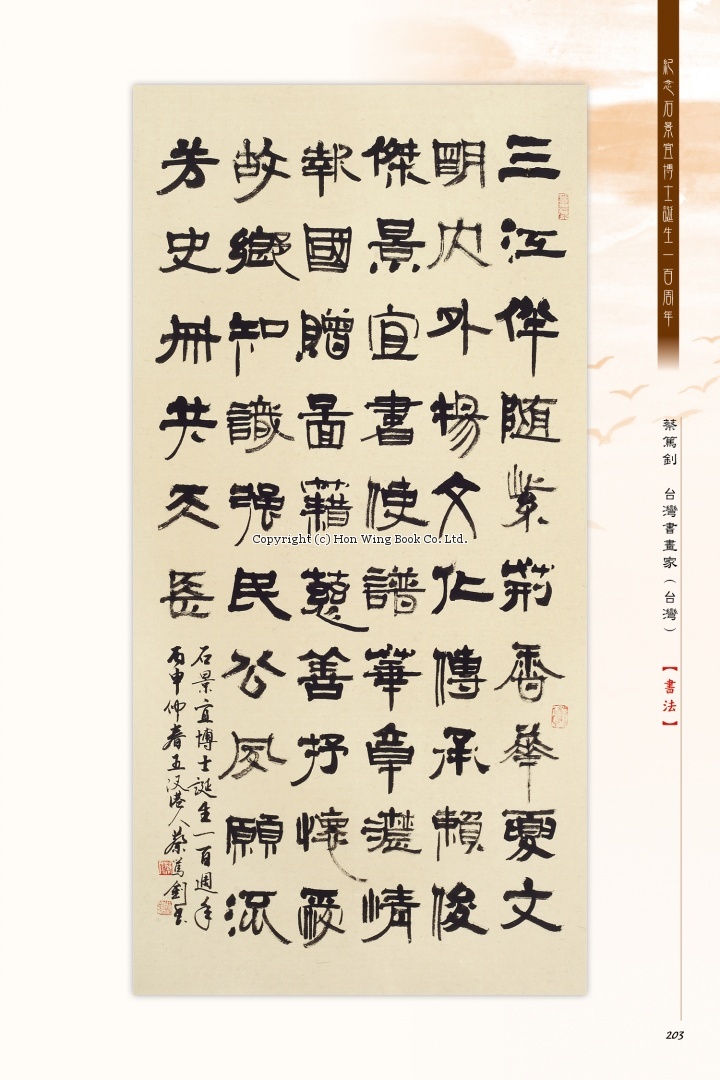 紀念石景宜博士誕生一百周年
蔡篤釗 台灣書畫家（台灣）
【書法】
三江伴随紫荊香華夏文
明内外楊文化傳承賴俊
傑景宜書使譜華章濃情
報國贈圖藉慈善抒懷愛
故鄉知識强民公夙願流
芳史冊共天長
石景宜博士誕生一百週年
丙申仲春五汊港人蔡篤釗書
Copyright (c) Hon Wing Book Co. Ltd.
203